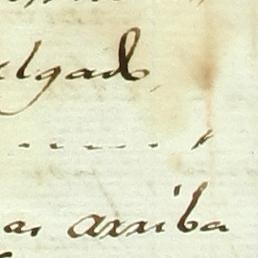 elgado,
- - - - - - - "
as arriba